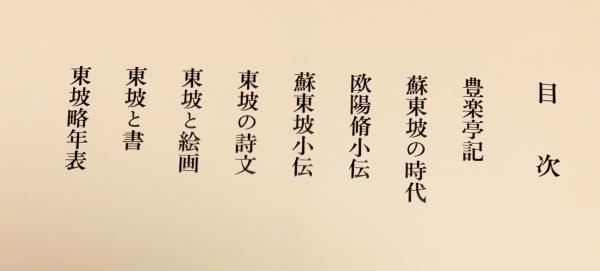 目次
豊楽亭記
蘇東坡の時代
欧陽脩小伝
蘇東坡小伝
東坡の詩文
東坡と絵画
東坡と書
東坡略年表